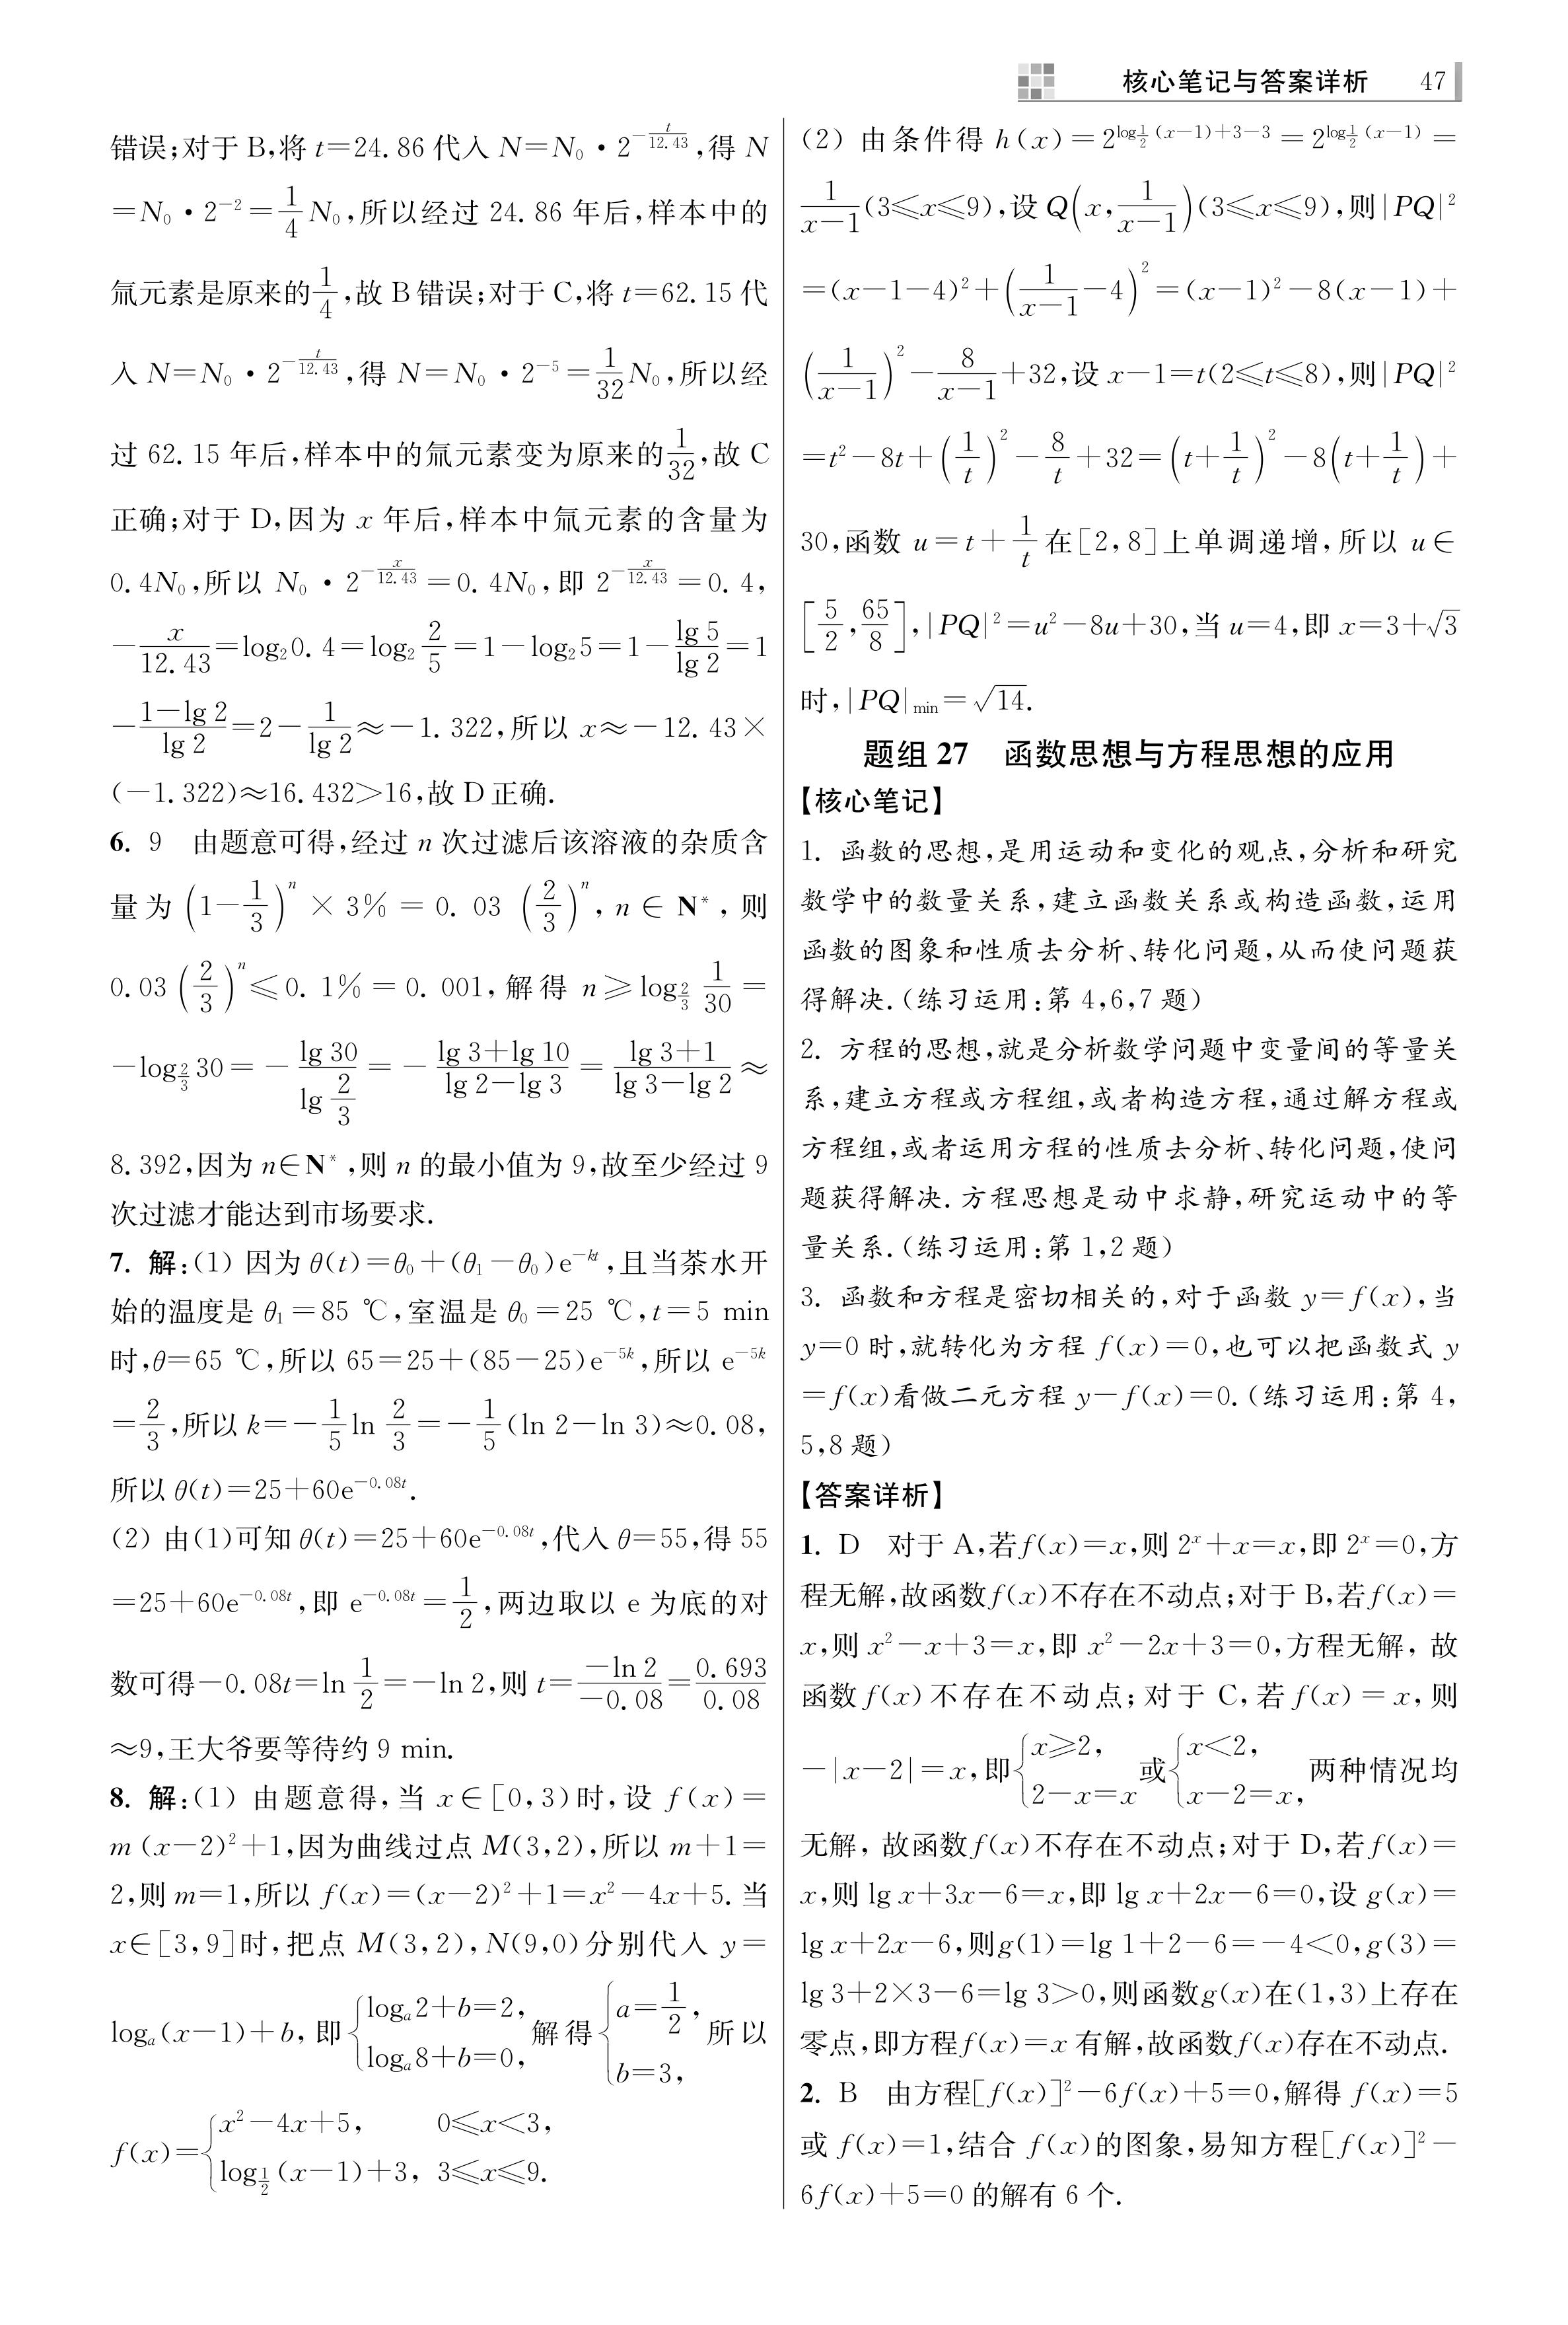 核心笔记与答案详析 47
错误;对于 B,将 t=24.86 代入 N=N₀・2^{-t/12.43},得 N
=N₀・2⁻²=1/4 N₀,所以经过 24.86 年后,样本中的
氚元素是原来的1/4,故 B 错误;对于 C,将 t=62.15 代
入 N=N₀・2^{-t/12.43},得 N=N₀・2⁻⁵=1/32 N₀,所以经
过 62.15 年后,样本中的氚元素变为原来的1/32,故 C
正确;对于 D,因为 x 年后,样本中氚元素的含量为
0.4N₀,所以 N₀・2^{-x/12.43}=0.4N₀,即 2^{-x/12.43}=0.4,
-x/12.43=log₂0.4=log₂ 2/5=1-log₂5=1-lg 5/lg 2=1
-(1-lg 2)/lg 2=2-1/lg 2≈-1.322,所以 x≈-12.43×
(-1.322)≈16.432>16,故 D 正确.
6. 9 由题意可得,经过 n 次过滤后该溶液的杂质含
量为 (1-1/3)ⁿ×3%=0.03 (2/3)ⁿ, n∈N*, 则
0.03 (2/3)ⁿ≤0.1%=0.001, 解得 n≥log_{2/3} 1/30=
-log_{2/3} 30=-lg 30/lg 2/3=-(lg 3+lg 10)/(lg 2-lg 3)=(lg 3+1)/(lg 3-lg 2)≈
8.392,因为 n∈N*,则 n 的最小值为 9,故至少经过 9
次过滤才能达到市场要求.
7. 解:(1) 因为 θ(t)=θ₀+(θ₁-θ₀)e^{-kt},且当茶水开
始的温度是 θ₁=85 ℃,室温是 θ₀=25 ℃,t=5 min
时,θ=65 ℃,所以 65=25+(85-25)e^{-5k},所以 e^{-5k}
=2/3,所以 k=-1/5 ln 2/3=-1/5(ln 2-ln 3)≈0.08,
所以 θ(t)=25+60e^{-0.08t}.
(2) 由(1)可知 θ(t)=25+60e^{-0.08t},代入 θ=55,得 55
=25+60e^{-0.08t},即 e^{-0.08t}=1/2,两边取以 e 为底的对
数可得-0.08t=ln 1/2=-ln 2,则 t=-ln 2/-0.08=0.693/0.08
≈9,王大爷要等待约 9 min.
8. 解:(1) 由题意得,当 x∈[0,3)时,设 f(x)=
m (x-2)²+1,因为曲线过点 M(3,2),所以 m+1=
2,则 m=1,所以 f(x)=(x-2)²+1=x²-4x+5. 当
x∈[3,9]时,把点 M(3,2),N(9,0)分别代入 y=
logₐ(x-1)+b, 即{logₐ2+b=2, logₐ8+b=0, 解得{a=1/2, b=3, 所以
f(x)={x²-4x+5, 0≤x<3, log_{1/2}(x-1)+3, 3≤x≤9.
(2) 由条件得 h(x)=2^{log_{1/2}(x-1)+3-3}=2^{log_{1/2}(x-1)}=
1/(x-1)(3≤x≤9),设 Q(x,1/(x-1))(3≤x≤9),则|PQ|²
=(x-1-4)²+(1/(x-1)-4)²=(x-1)²-8(x-1)+
(1/(x-1))²-8/(x-1)+32,设 x-1=t(2≤t≤8),则|PQ|²
=t²-8t+(1/t)²-8/t+32=(t+1/t)²-8(t+1/t)+
30,函数 u=t+1/t 在[2,8]上单调递增,所以 u∈
[5/2,65/8],|PQ|²=u²-8u+30,当 u=4,即 x=3+√3
时,|PQ|min=√14.
题组 27 函数思想与方程思想的应用
【核心笔记】
1. 函数的思想,是用运动和变化的观点,分析和研究
数学中的数量关系,建立函数关系或构造函数,运用
函数的图象和性质去分析、转化问题,从而使问题获
得解决.(练习运用:第 4,6,7 题)
2. 方程的思想,就是分析数学问题中变量间的等量关
系,建立方程或方程组,或者构造方程,通过解方程或
方程组,或者运用方程的性质去分析、转化问题,使问
题获得解决.方程思想是动中求静,研究运动中的等
量关系.(练习运用:第 1,2 题)
3. 函数和方程是密切相关的,对于函数 y=f(x),当
y=0 时,就转化为方程 f(x)=0,也可以把函数式 y
=f(x)看做二元方程 y-f(x)=0.(练习运用:第 4,
5,8 题)
【答案详析】
1. D 对于 A,若f(x)=x,则 2ˣ+x=x,即 2ˣ=0,方
程无解,故函数f(x)不存在不动点;对于 B,若f(x)=
x,则 x²-x+3=x,即 x²-2x+3=0,方程无解, 故
函数 f(x) 不存在不动点; 对于 C, 若 f(x)=x, 则
-|x-2|=x,即{x≥2, 2-x=x 或{x<2, x-2=x, 两种情况均
无解, 故函数f(x)不存在不动点;对于 D,若f(x)=
x,则 lg x+3x-6=x,即 lg x+2x-6=0,设 g(x)=
lg x+2x-6,则g(1)=lg 1+2-6=-4<0,g(3)=
lg 3+2×3-6=lg 3>0,则函数g(x)在(1,3)上存在
零点,即方程f(x)=x 有解,故函数f(x)存在不动点.
2. B 由方程[f(x)]²-6f(x)+5=0,解得 f(x)=5
或 f(x)=1,结合 f(x)的图象,易知方程[f(x)]²-
6f(x)+5=0 的解有 6 个.